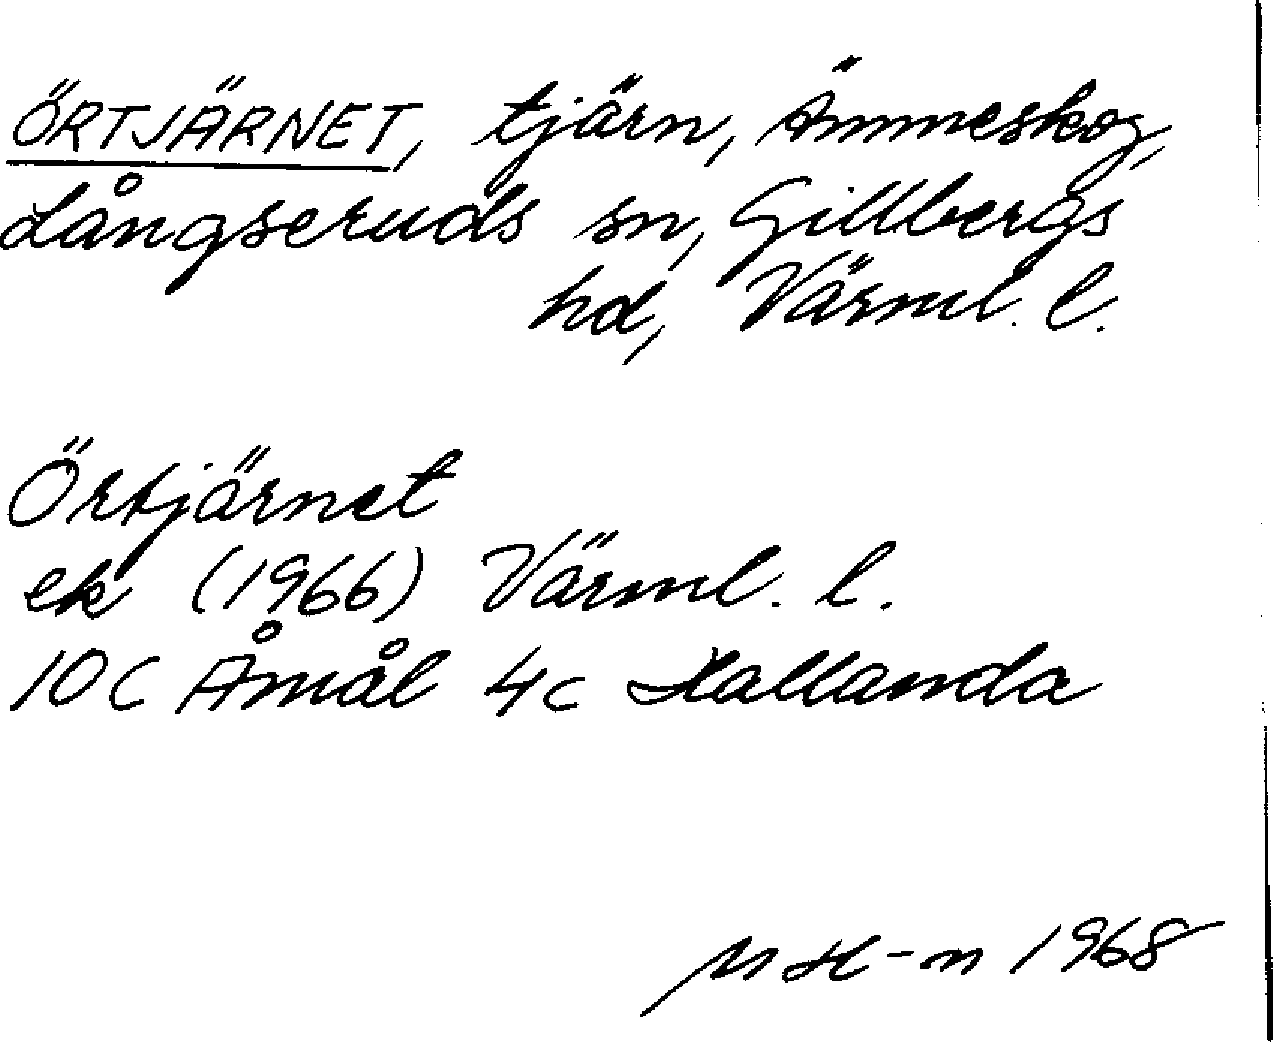 ÖRTJÄRNET, tjärn, Ämmeskog,
Långseruds sn, Gillbergs
hd, Värml. l.
Örtjärnet
ek (1966) Värml. l.
10C Åmål 4c Hallanda
MH-n 1968